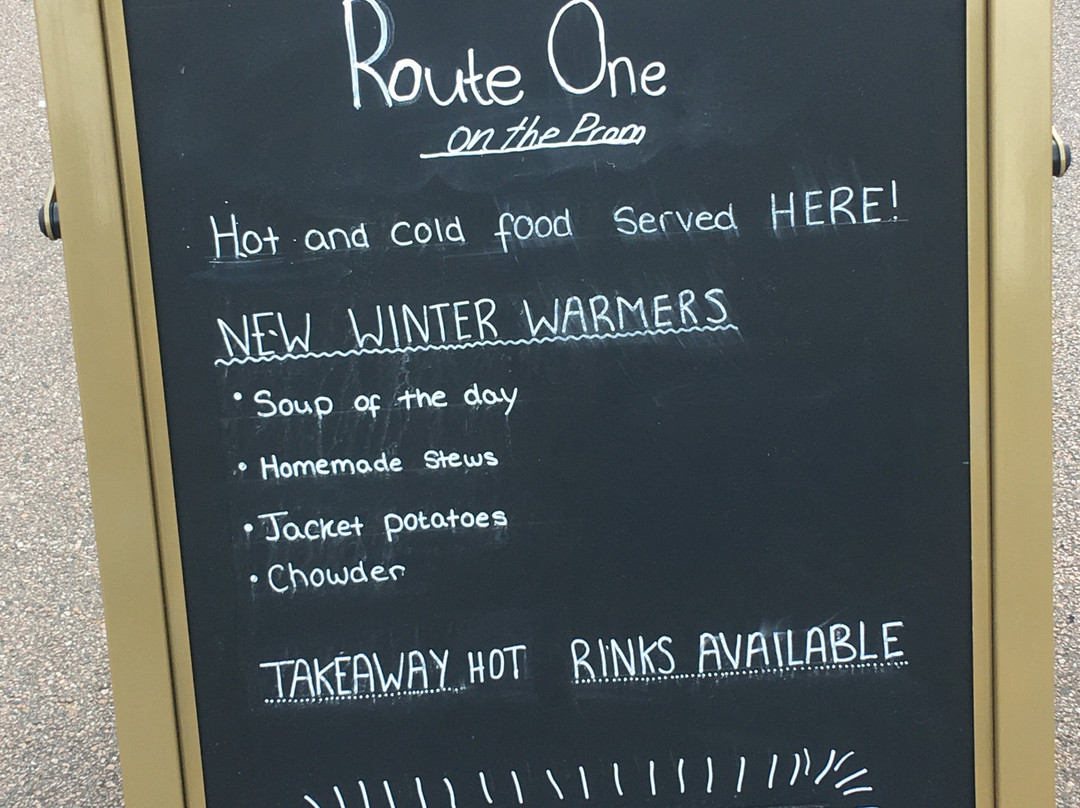 Route One
on the Prom
Hot and cold food Served HERE!
NEW WINTER WARMERS
• Soup of the day
• Homemade Stews
• Jacket potatoes
• Chowder
TAKEAWAY HOT RINKS AVAILABLE